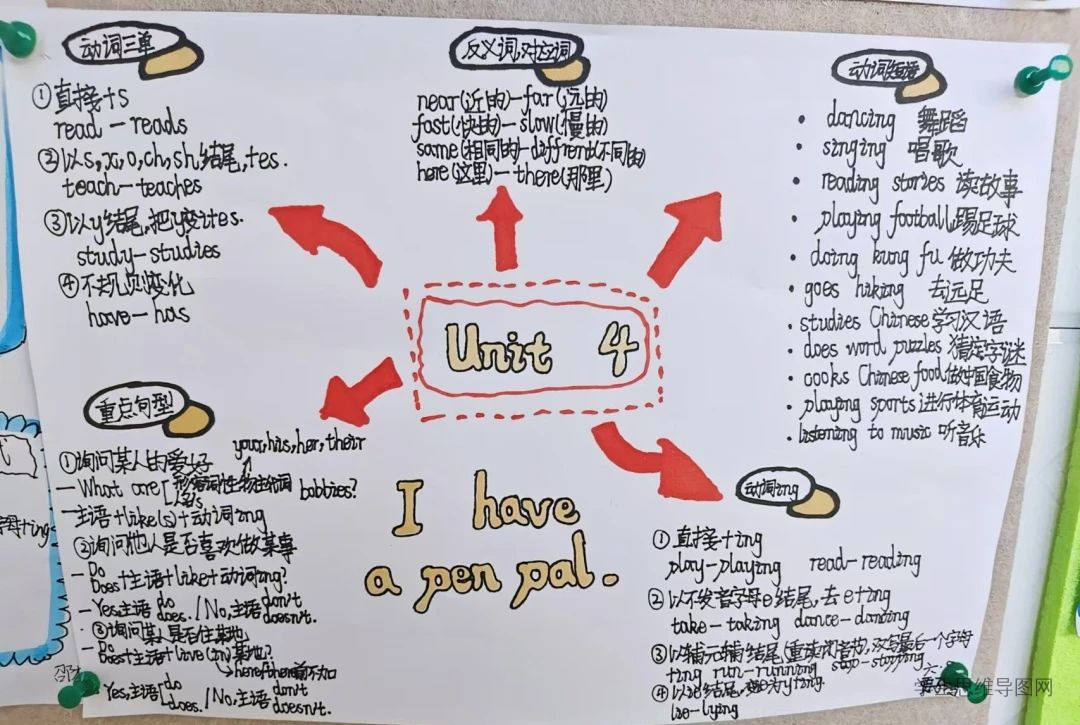 动词三单
①直接+s
read—reads
②以s,x,o,ch,sh结尾,+es.
teach—teaches
③以y结尾,把y变i+es.
study—studies
④不规则变化
have—has
反义词,对应词
near(近的)—far(远的)
fast(快的)—slow(慢的)
same(相同的)—diffrent(不同的)
here(这里)—there(那里)
动词短语
• dancing 舞蹈
• singing 唱歌
• reading stories 读故事
• playing football 踢足球
• doing kung fu 做功夫
• goes hiking 去远足
• studies Chinese 学习汉语
• does word puzzles 猜定字谜
• cooks Chinese food 做中国食物
• playing sports 进行体育运动
• listening to music 听音乐
Unit 4
I have
a pen pal.
重点句型
your,his,her,their
①询问某人的爱好
—What are [形容词性物主代词 hobbies?
名's
—主语+like(s)+动词ing
②询问他人是否喜欢做某事
—Do
Does+主语+like+动词ing?
—Yes,主语 do
does. / No,主语 don't
doesn't.
③询问某人是否住某地
—Do
Does+主语+live(in)某地?
here/there前不加
Yes,主语[do
does. / No,主语 don't
doesn't.
动词ing
①直接+ing
play—playing read—reading
②以不发音字母e结尾,去e+ing
take—taking dance—dancing
③以辅元辅结尾(重读闭音节),双写最后一个字母
+ing run—running stop—stopping
④以ie结尾,变ie为y+ing
lie—lying
字母+ing
学生思维导图网